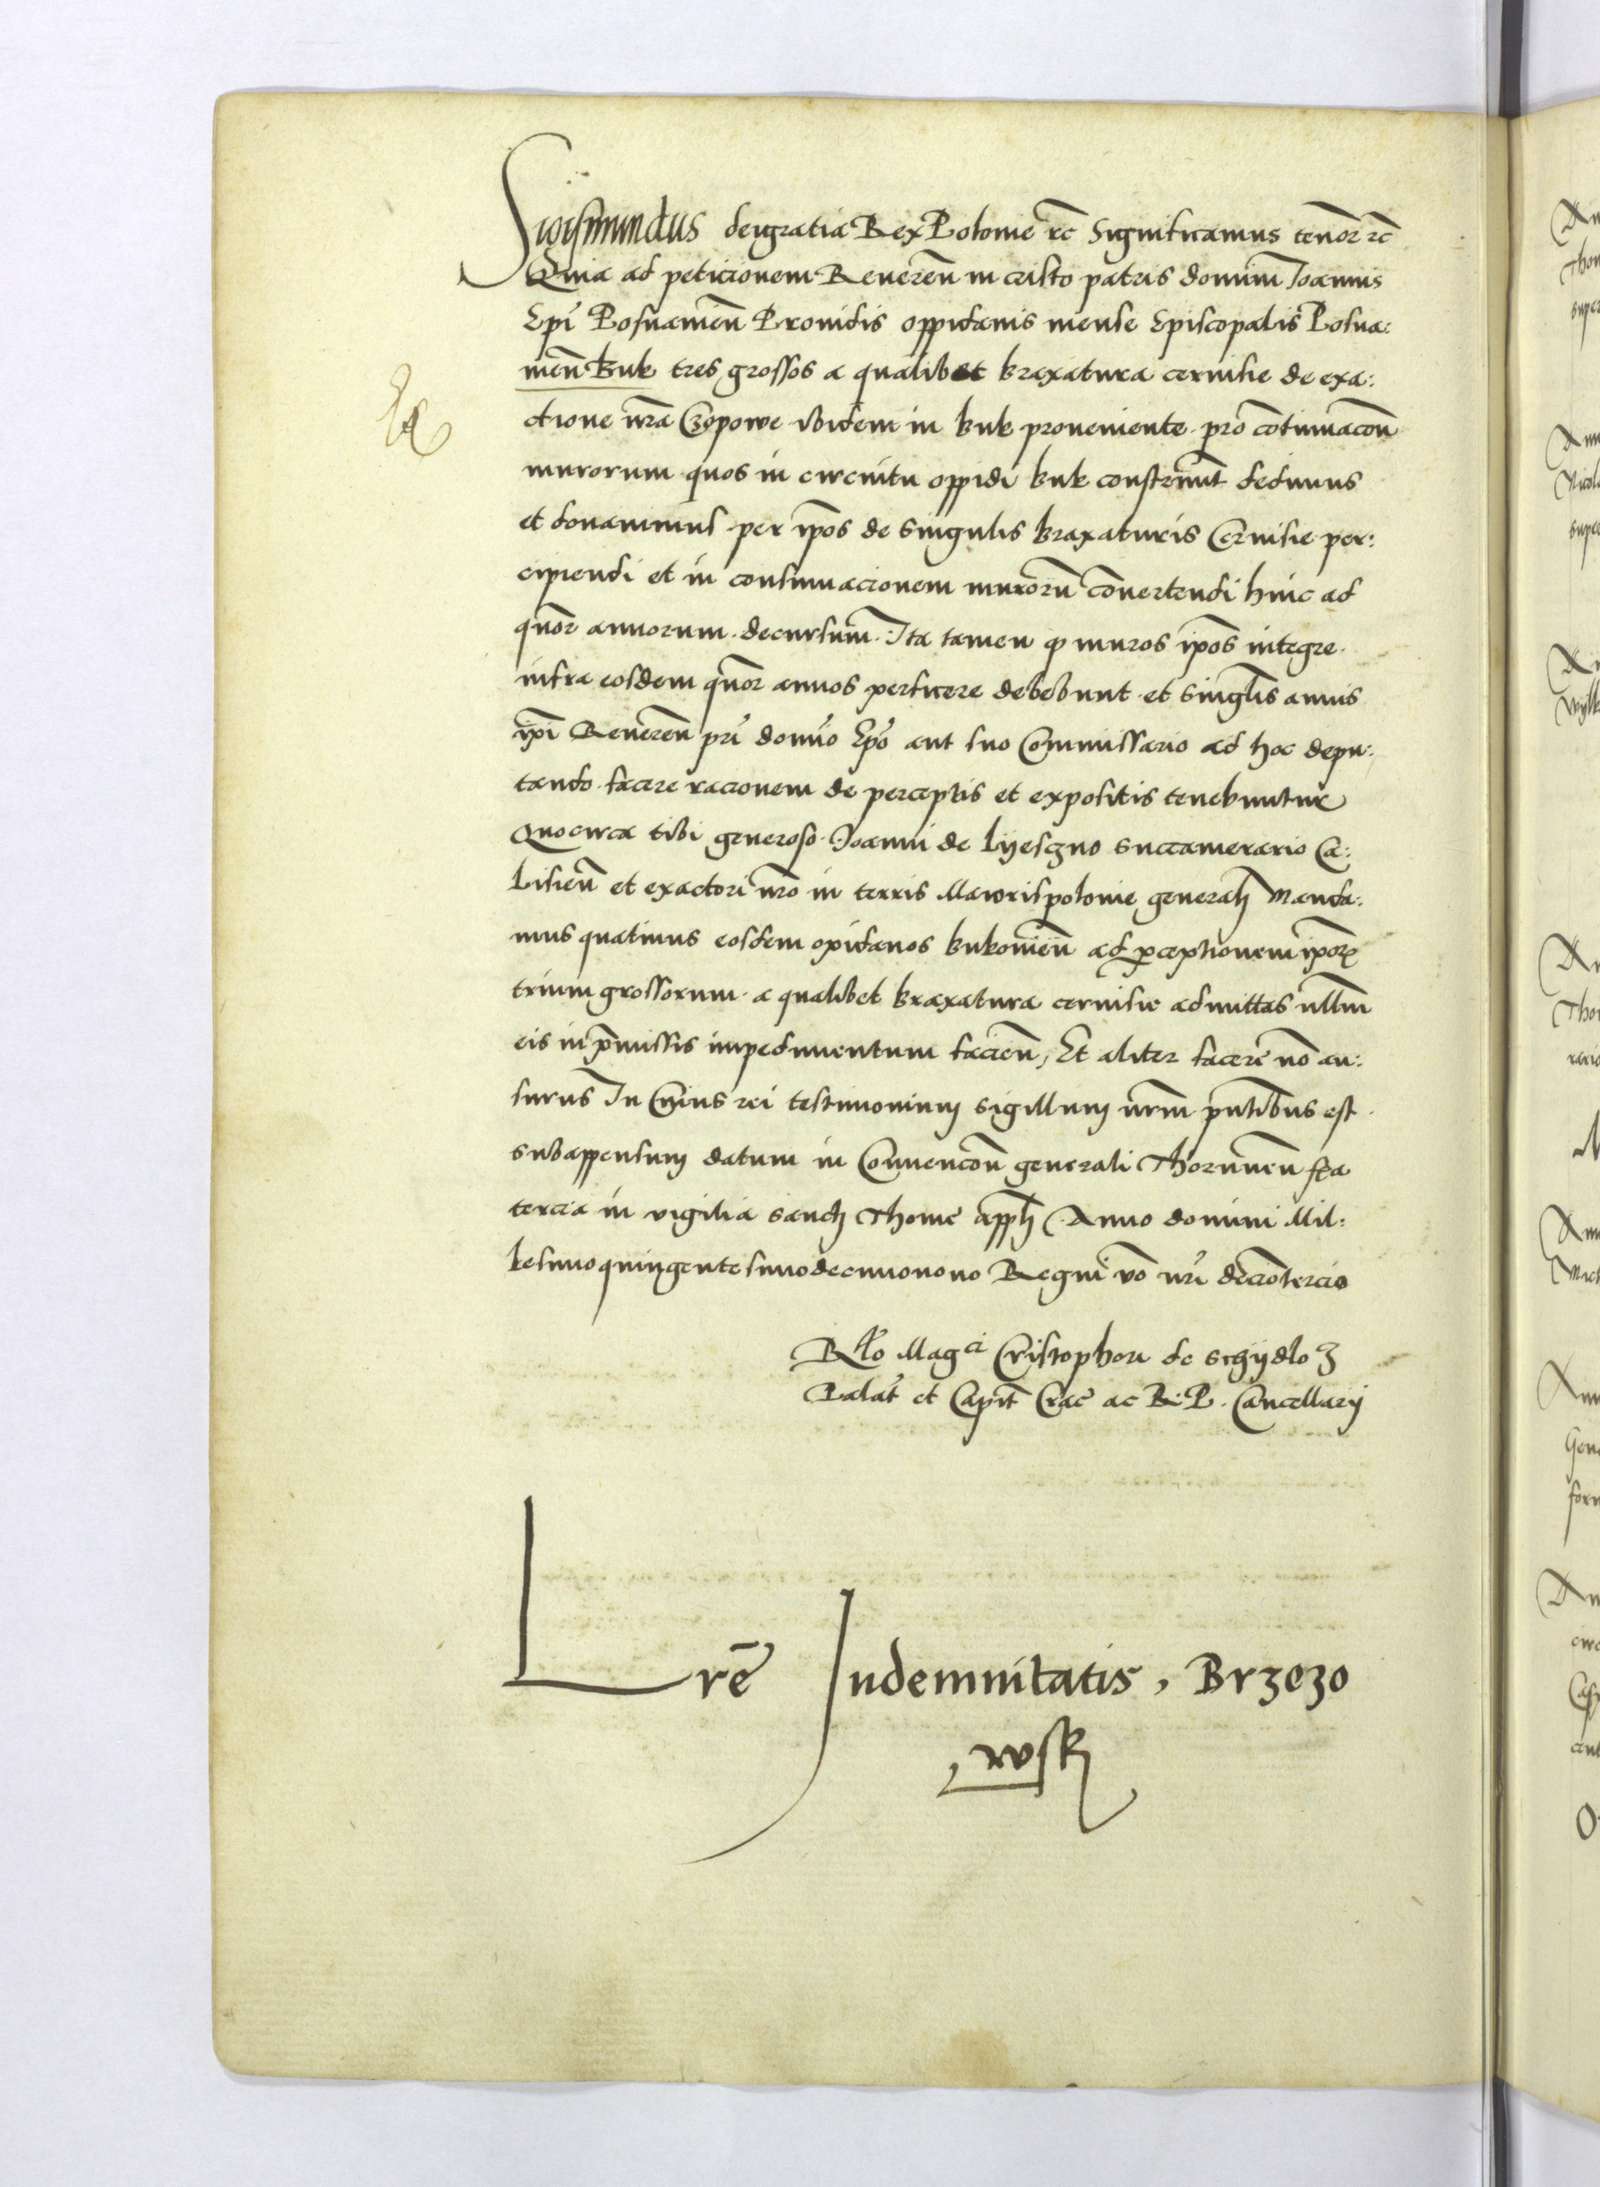 Sigismundus dei gratia Rex Polonie rc̄ Significamus tenor̄ rc̄
Quia ad peticionem Reveren̄ in cristo patris domini Ioannis
Epī Posnamen̄ Providis oppidanis mense Episcopalis Posna:
men̄ Buk tres grossos a qualibet braxatura cervisie de exa:
ctione nr̄a Czopowe ibidem in buk proveniente pro cōtinuacōn
murorum quos in circuitu oppidi buk construūt dedimus
et donavimus per ip̄os de singulis braxaturis Cervisie per:
cipiendi et in continuacionem murorū cōnertendi hinc ad
quōr annorum decursum. Ita tamen q muros ip̄os integre
infra eosdem quōr annos perficere debebunt et singl̄is annis
ip̄i Reveren̄ pr̄i domīo Epō aut suo Commissario ad hoc depu:
tando facere racionem de perceptis et expositis tenebuntur
Quocirca tibi generoso Ioanni de lyesczno succamerario Ca:
lisien̄ et exactori nr̄o in terris Maiorispolonie generalj Manda:
mus quatinus eosdem opidanos bukovien̄ ad p̱ceptionem ip̄oꝝ
trium grossorum a qualibet braxatura cervisie admittas nullm̄
eis in p̄missis impedimentum facien̄, Et aliter facere nō au:
surus In Cuius rei testimonium sigillum nr̄m pn̄tibus est
subappensum datum in Convencōn generali Thorunien̄ fr̄a
tercia in vigilia sanctj Thome app̄lj Anno domini Mil:
lesimoquingentesimodecimonono Regni v̄o nr̄i decīotercio
Rl̄o Magci Cristophori de schydlo3
Palat̄ et Capit̄ Crac̄ ac R. P. Cancellarij
Lrē Indemnitatis, Brzezo
wskj